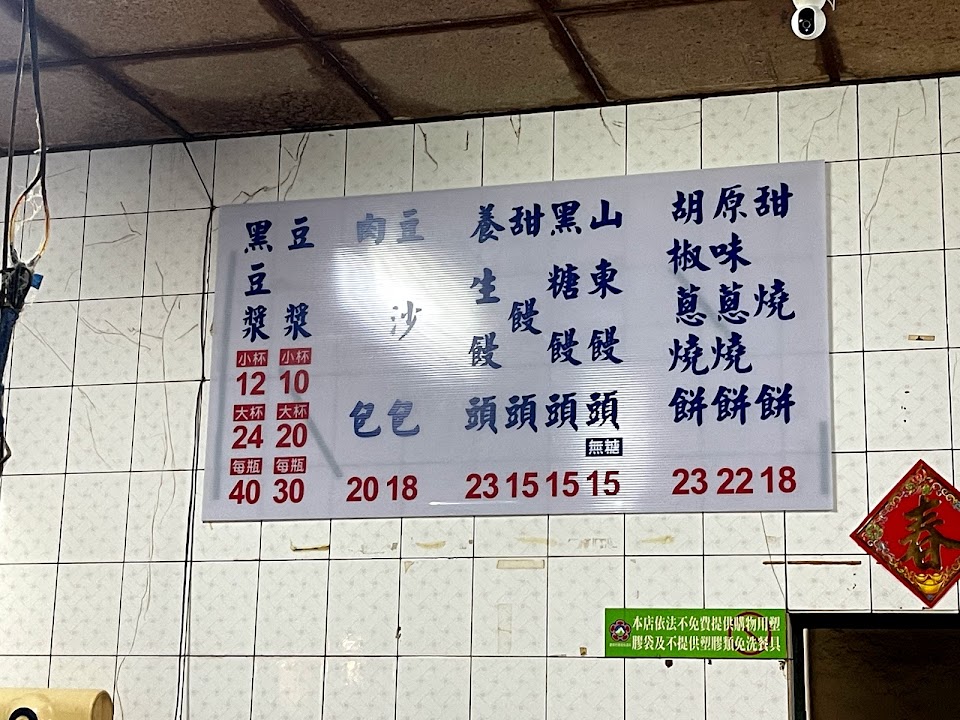 甜燒餅 18
原味蔥燒餅 22
胡椒蔥燒餅 23
山東饅頭 無糖 15
黑糖饅頭 15
甜饅頭 15
養生饅頭 23
豆沙包 18
肉包 20
豆漿 小杯 10 大杯 20 每瓶 30
黑豆漿 小杯 12 大杯 24 每瓶 40
春
本店依法不免費提供購物用塑
膠袋及不提供塑膠類免洗餐具